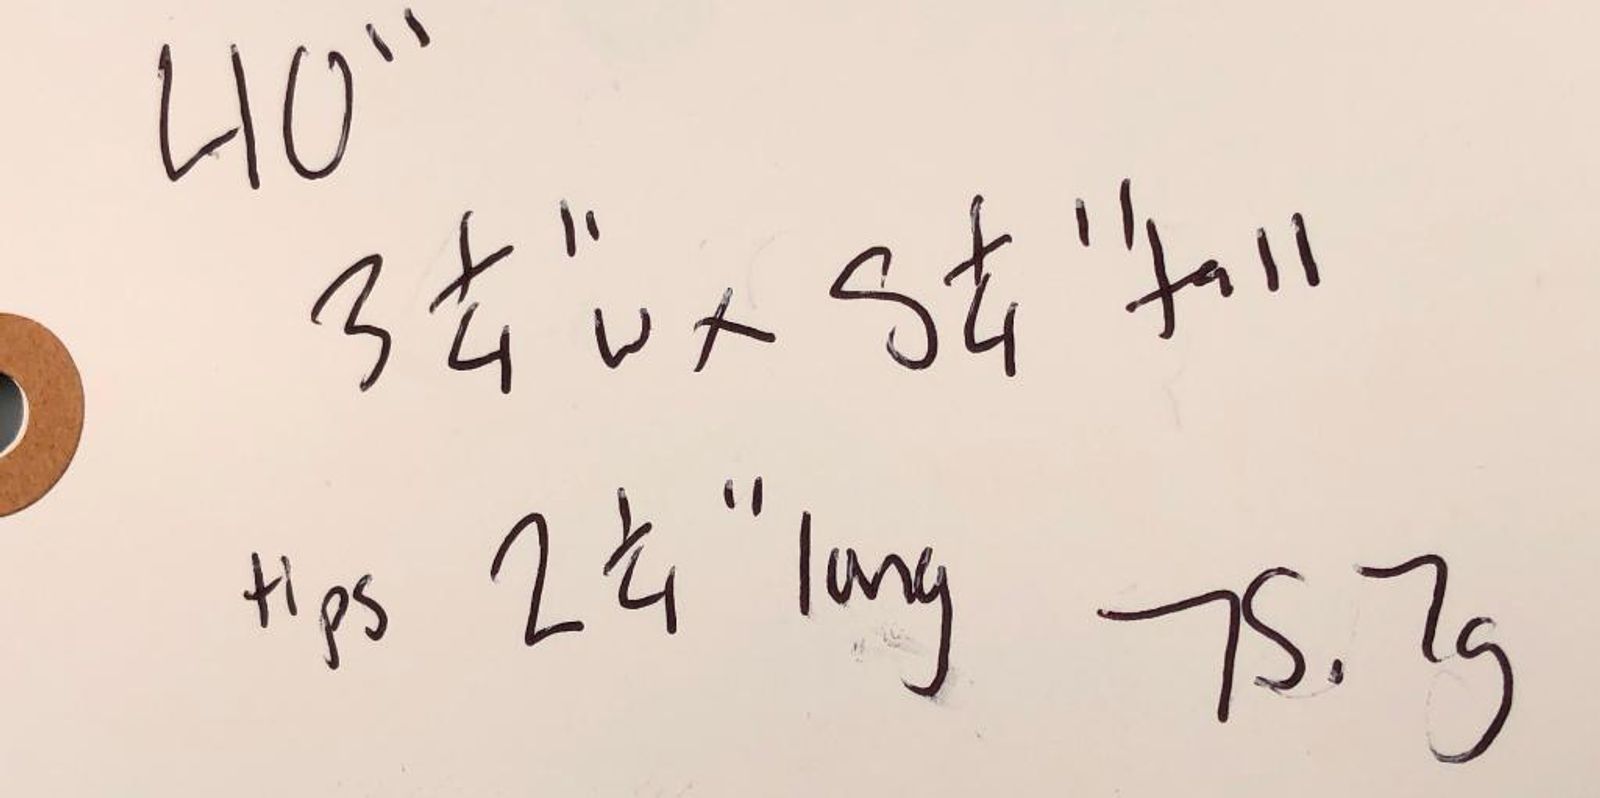 40"
3 1/4" w x 5 1/4" tall
tips 2 1/4" long 75.7g